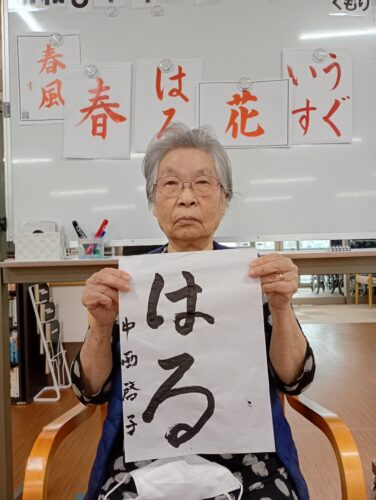 くもり
春風
春
はる
花
うぐいす
はる
中西啓子